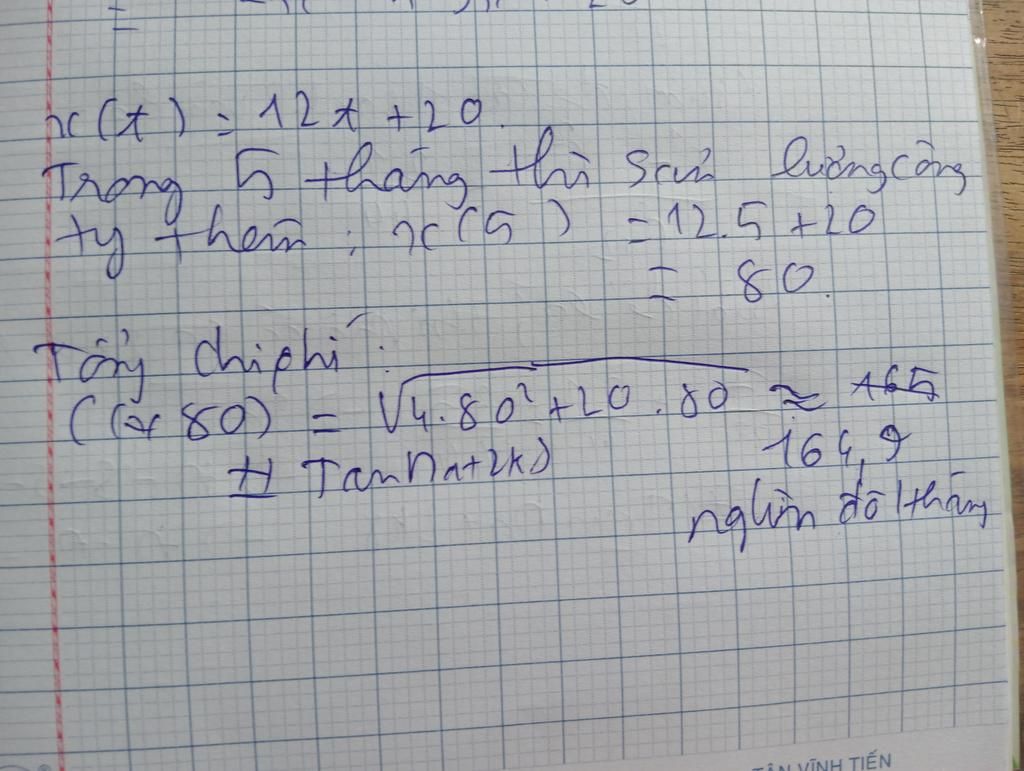 x(t) = 12t + 20.
Trong 5 tháng thì sản lượng công
ty thêm : x(5) = 12.5 + 20
= 80.
Tổng chi phí :
80) = √4.80²+20.80 ≈ 165
164,9
nghìn đô/tháng
TÂN VĨNH TIẾN